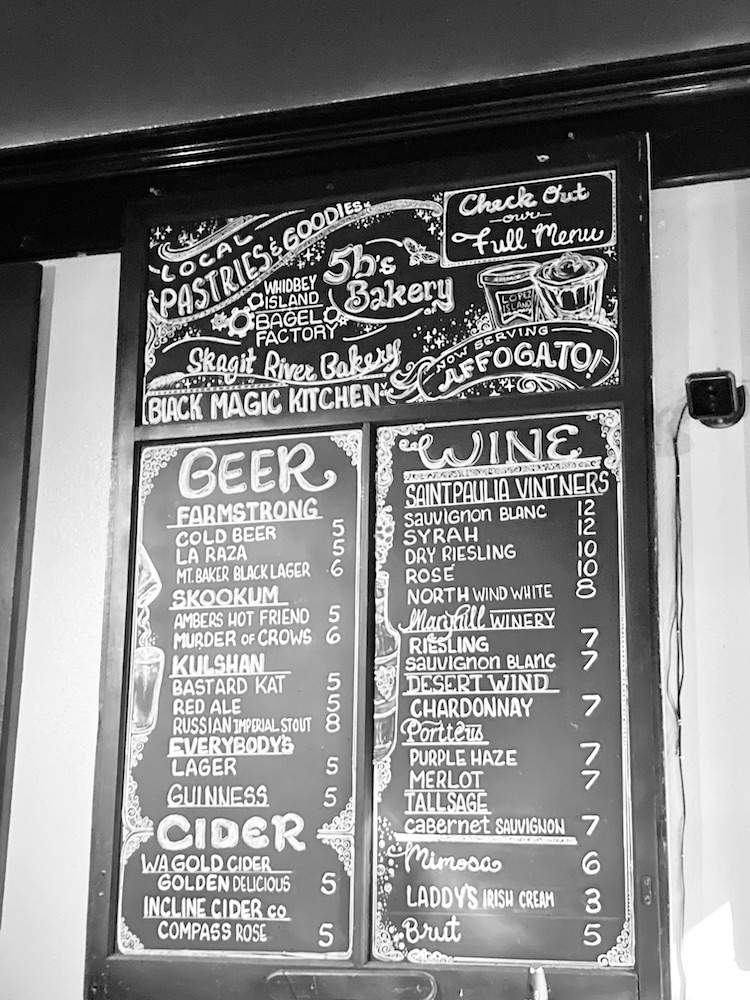 LOCAL
PASTRIES & GOODIES
WHIDBEY
ISLAND
BAGEL
FACTORY
5b's
Bakery
Skagit River Bakery
BLACK MAGIC KITCHEN
Check Out
our
Full Menu
LOPEZ
ISLAND
NOW SERVING
AFFOGATO!
BEER
FARMSTRONG
COLD BEER 5
LA RAZA 5
MT. BAKER BLACK LAGER 6
SKOOKUM
AMBERS HOT FRIEND 5
MURDER OF CROWS 6
KULSHAN
BASTARD KAT 5
RED ALE 5
RUSSIAN IMPERIAL STOUT 8
EVERYBODY'S
LAGER 5
GUINNESS 5
CIDER
WA GOLD CIDER
GOLDEN DELICIOUS 5
INCLINE CIDER CO
COMPASS ROSE 5
WINE
SAINTPAULIA VINTNERS
SAUVIGNON BLANC 12
SYRAH 12
DRY RIESLING 10
ROSÉ 10
NORTH WIND WHITE 8
Maryhill WINERY
RIESLING 7
SAUVIGNON BLANC 7
DESERT WIND
CHARDONNAY 7
Portteus
PURPLE HAZE 7
MERLOT 7
TALLSAGE
CABERNET SAUVIGNON 7
Mimosa 6
LADDY'S IRISH CREAM 3
Brut 5